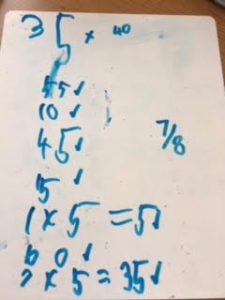 35 × 40
55 ✓
10 ✓
45 ✓
5 ✓
7/8
1 × 5 = 5 ✓
60 ✓
7 × 5 = 35 ✓